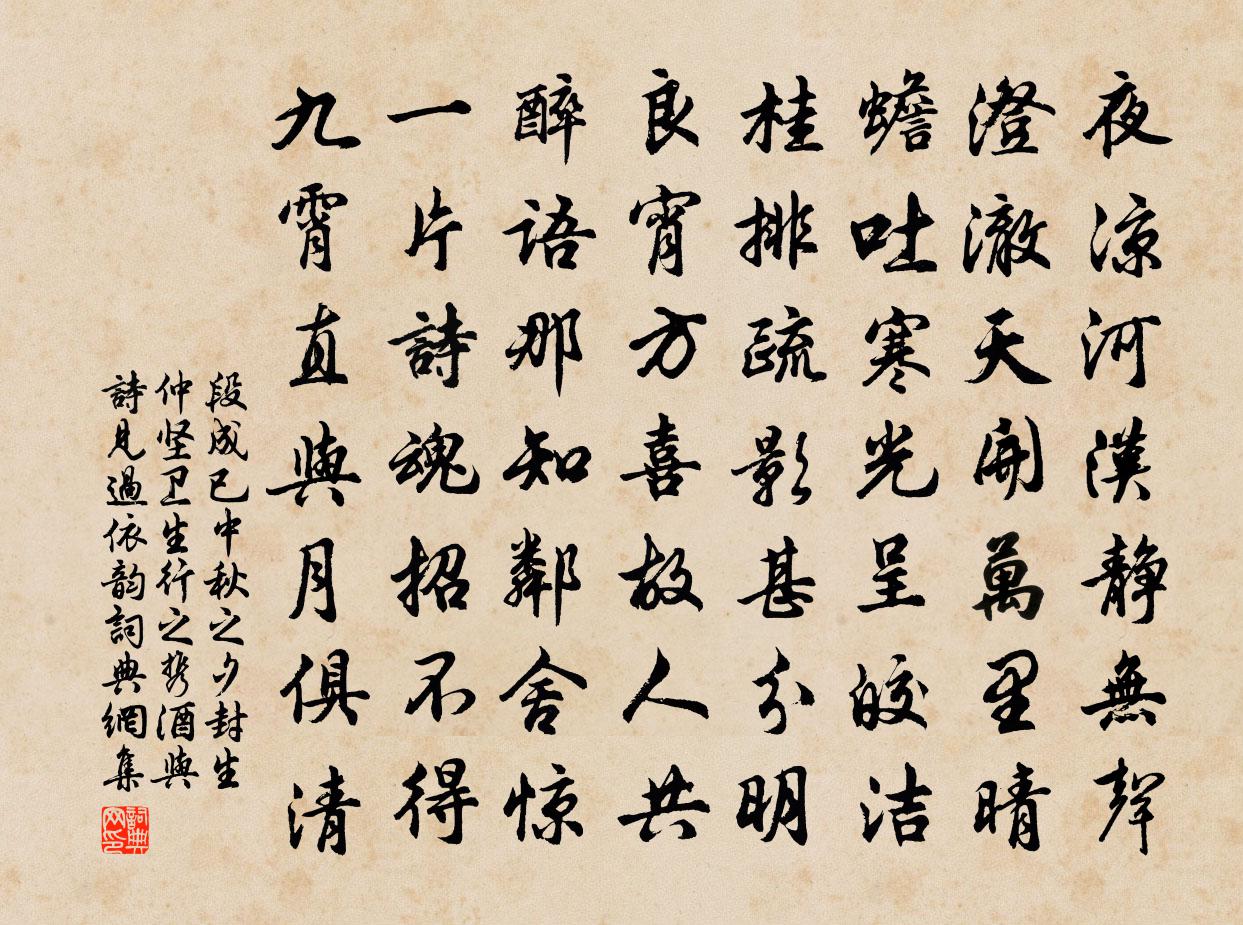 夜涼河漢静無聲
澄澈天開萬里晴
蟾吐寒光呈皎洁
桂排疏影甚分明
良宵方喜故人共
醉語那知鄰舍惊
一片詩魂招不得
九霄直與月俱清
段成已中秋之夕封生
仲坚卫生行之携酒與
詩見過依韵詞典網集
詞典网印